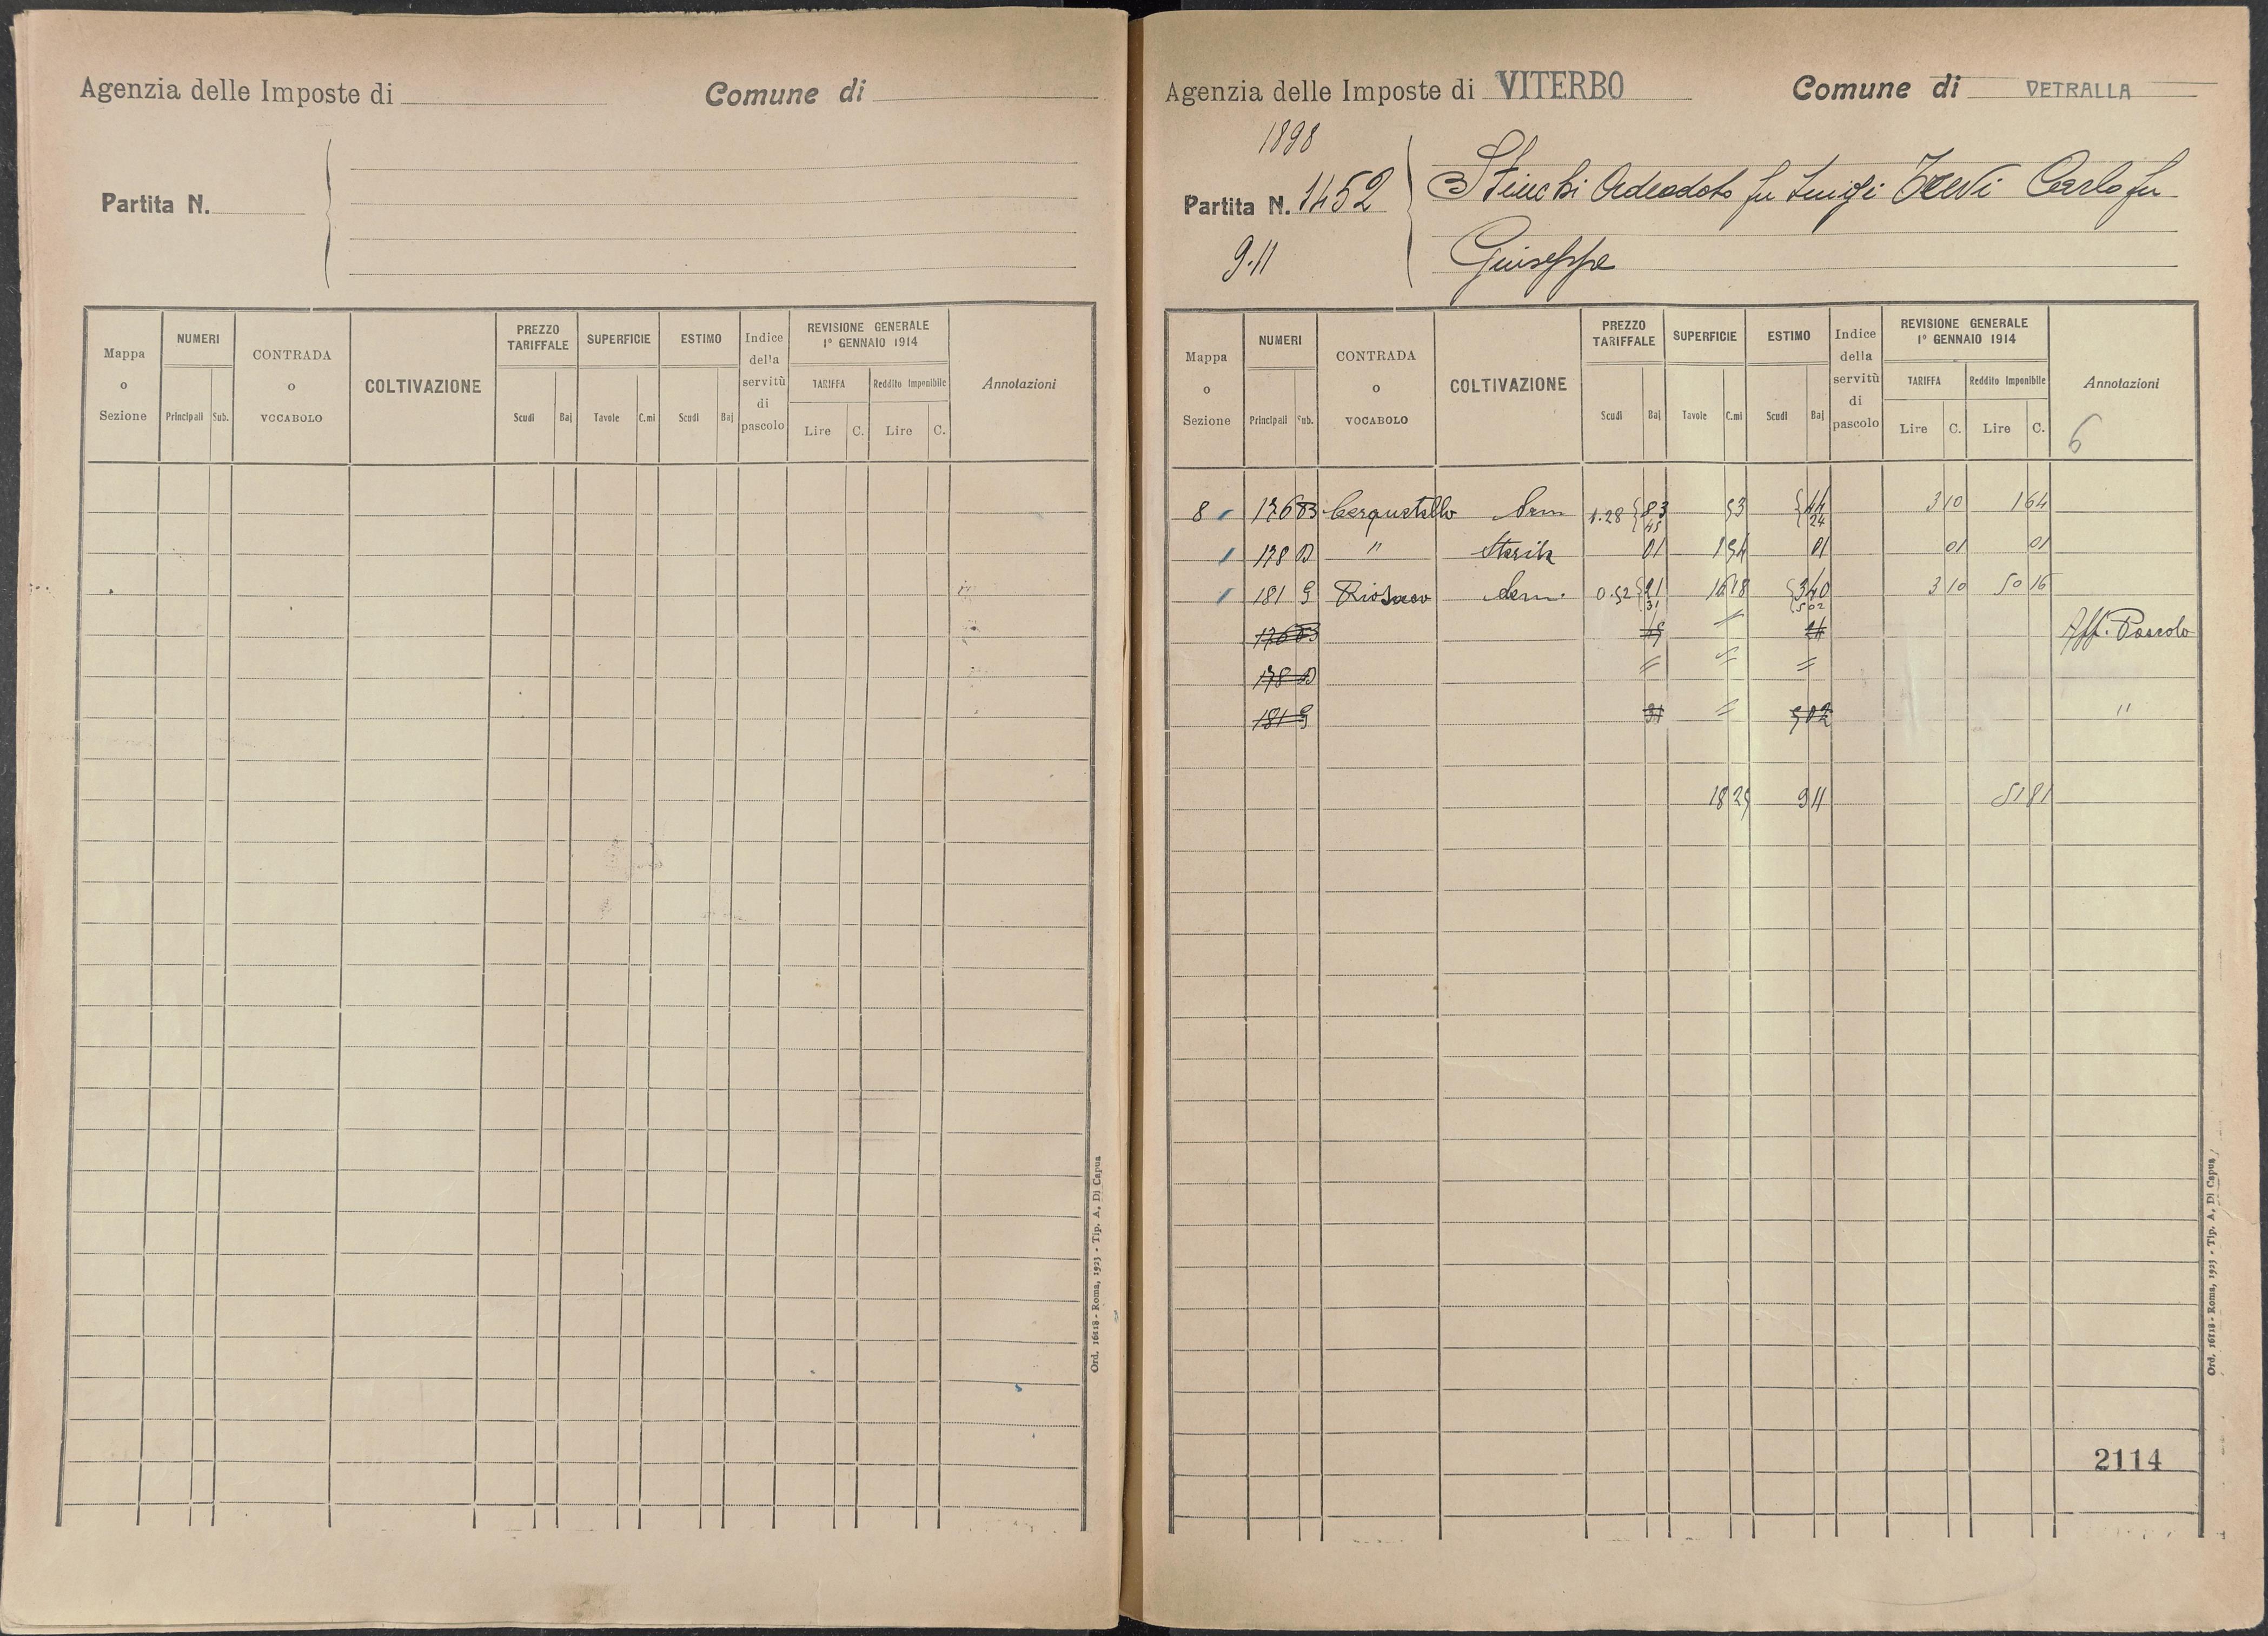 Agenzia delle Imposte di
Comune di
Partita N.
Mappa o Sezione
NUMERI
Principali Sub.
CONTRADA o VOCABOLO
COLTIVAZIONE
PREZZO TARIFFALE
Scudi Baj
SUPERFICIE
Tavole C.mi
ESTIMO
Scudi Baj
Indice della servitù di pascolo
REVISIONE GENERALE 1° GENNAIO 1914
TARIFFA
Lire C.
Reddito Imponibile
Lire C.
Annotazioni
Ord. 16118 - Roma, 1923 - Tip. A. Di Capua
Agenzia delle Imposte di VITERBO
Comune di VETRALLA
1898
Partita N. 1452
9.11
Adeodato fu Luigi Carlo fu
Giuseppe
Mappa o Sezione
NUMERI
Principali Sub.
CONTRADA o VOCABOLO
COLTIVAZIONE
PREZZO TARIFFALE
Scudi Baj
SUPERFICIE
Tavole C.mi
ESTIMO
Scudi Baj
Indice della servitù di pascolo
REVISIONE GENERALE 1° GENNAIO 1914
TARIFFA
Lire C.
Reddito Imponibile
Lire C.
Annotazioni
6
8 176 B Cerquetello Sem 1.28 { 83 53 { 44 3 10 1 64
45 24
178 D " Sterile 01 1 54 01 01 01
181 G Sem. 0.52 { 21 16 18 { 3 40 3 10 50 16
31 5 02
176 B 45 24 Aff. Pascolo
178 D = = =
181 G 31 = 5 02 "
18 25 9 11 51 81
2114
Ord. 16118 - Roma, 1923 - Tip. A. Di Capua